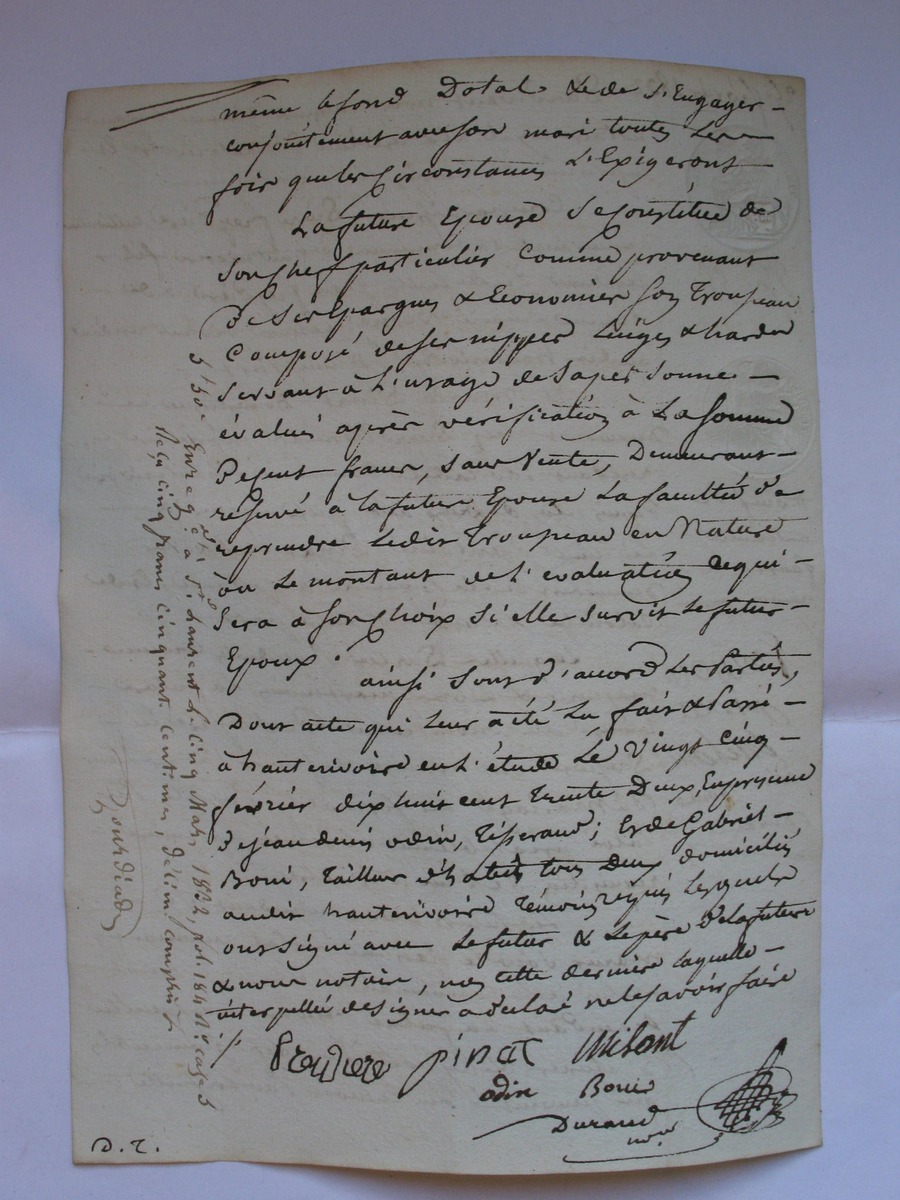 même le fond Dotal & de s'Engager
conjointement avec son mari toutes les
fois que les Circonstances l'Exigeront
La future Epouse se constitue de
son Chef particulier comme provenant
de ses Epargnes & Economies son Trousseau
Composé de ses nippes linges & hardes
servant à l'usage de sa personne
évalués après vérification à la somme
De Cent francs, sans Vente, Demeurant
réservé à la future Epouse la faculté de
reprendre ledit Trousseau en Nature
ou le montant de l'évaluation ce qui
sera à son Choix si elle survit le futur
Epoux.
ainsi sont d'accord les Parties,
Dont acte qui leur a été lu fait & Passé
à hauterivoire en l'étude Le Vingt Cinq
février dix huit cent trente Deux, En présence
de jean denis odin, Tisserand; & de Gabriel
Boni, Tailleur d'habits tous Deux domiciliés
audit hauterivoire témoins requis lesquels
ont signé avec le futur & le père de la future
& nous notaire, non cette dernière laquelle
interpellée de signer a déclaré ne le savoir faire
pinat
odin Boni
Durand
nore
D. T.
Enregé à St. Laurent le cinq Mars 1832, fol. 184 Vo. case 5
Reçu cinq francs cinquante centimes, décime compris